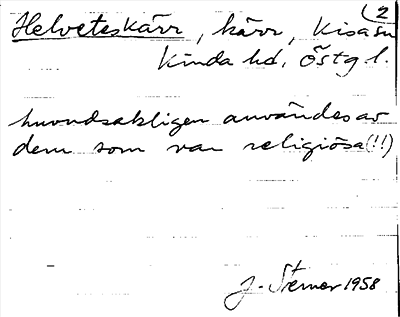 2
Helveteskärr, kärr, Kisa sn
Kinda hd, Östg l.
huvudsakligen användes av
dem som var religiösa (!!)
J. Sterner 1958